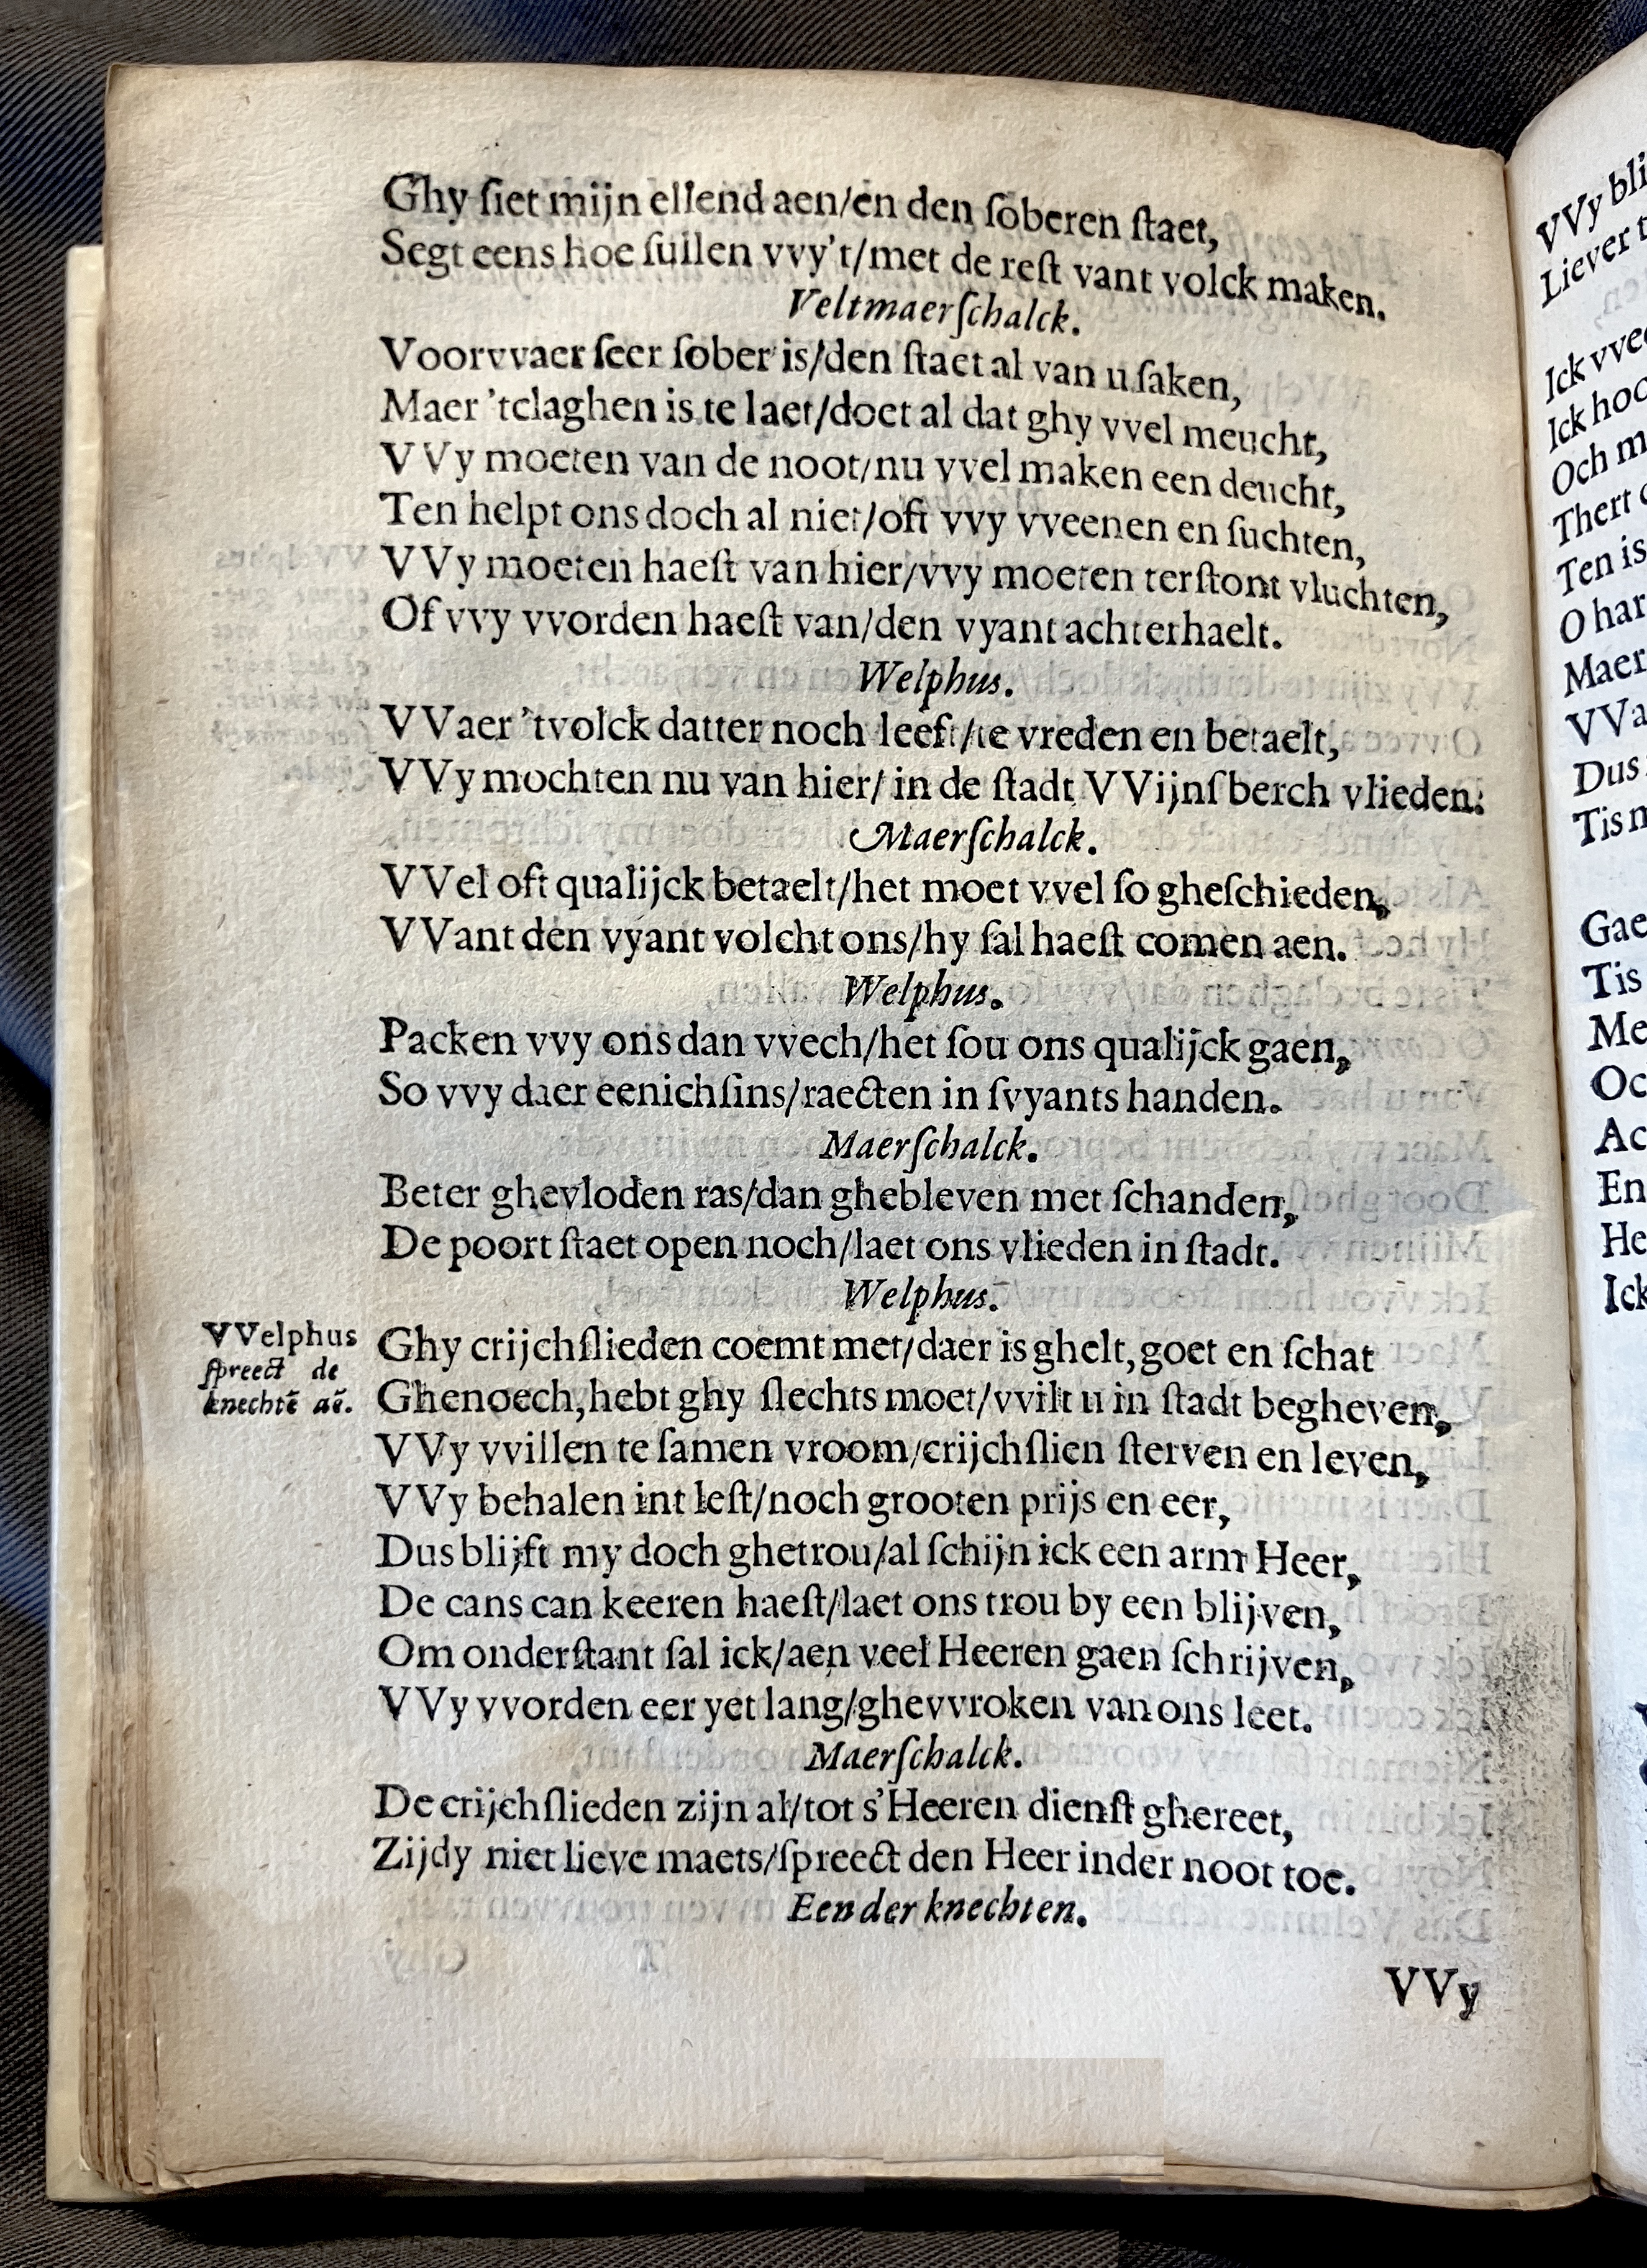 Ghy ſiet mijn ellend aen/en den ſoberen ſtaet,
Segt eens hoe ſullen vvy't/met de reſt vant volck maken.
Veltmaerſchalck.
Voorvvaer ſeer ſober is/den ſtaet al van u ſaken,
Maer 'tclaghen is te laet/doet al dat ghy vvel meucht,
VVy moeten van de noot/nu vvel maken een deucht,
Ten helpt ons doch al niet/oft vvy vveenen en ſuchten,
VVy moeten haeſt van hier/vvy moeten terſtont vluchten,
Of vvy vvorden haeſt van/den vyant achterhaelt.
Welphus.
VVaer 'tvolck datter noch leeft/te vreden en betaelt,
VVy mochten nu van hier/ in de ſtadt VVijnſberch vlieden.
Maerſchalck.
VVel oft qualijck betaelt/het moet vvel ſo gheſchieden,
VVant den vyant volcht ons/hy ſal haeſt comen aen.
Welphus.
Packen vvy ons dan vvech/het ſou ons qualijck gaen,
So vvy daer eenichſins/raecten in ſvyants handen.
Maerſchalck.
Beter ghevloden ras/dan ghebleven met ſchanden,
De poort ſtaet open noch/laet ons vlieden in ſtadt.
Welphus.
VVelphus
ſpreect de
knechtē aē.
Ghy crijchſlieden coemt met/daer is ghelt, goet en ſchat
Ghenoech, hebt ghy ſlechts moet/vvilt u in ſtadt begheven,
VVy vvillen te ſamen vroom/crijchſlien ſterven en leven,
VVy behalen int leſt/noch grooten prijs en eer,
Dus blijft my doch ghetrou/al ſchijn ick een arm Heer,
De cans can keeren haeſt/laet ons trou by een blijven,
Om onderſtant ſal ick/aen veel Heeren gaen ſchrijven,
VVy vvorden eer yet lang/ghevvroken van ons leet.
Maerſchalck.
De crijchſlieden zijn al/tot s'Heeren dienſt ghereet,
Zijdy niet lieve maets/ſpreect den Heer inder noot toe.
Een der knechten.
VVy
VVy
Liever
Ick
Ick
Och
Thert
Ten is
O
Maer
Dus
Tis
Me
En
He
Ick